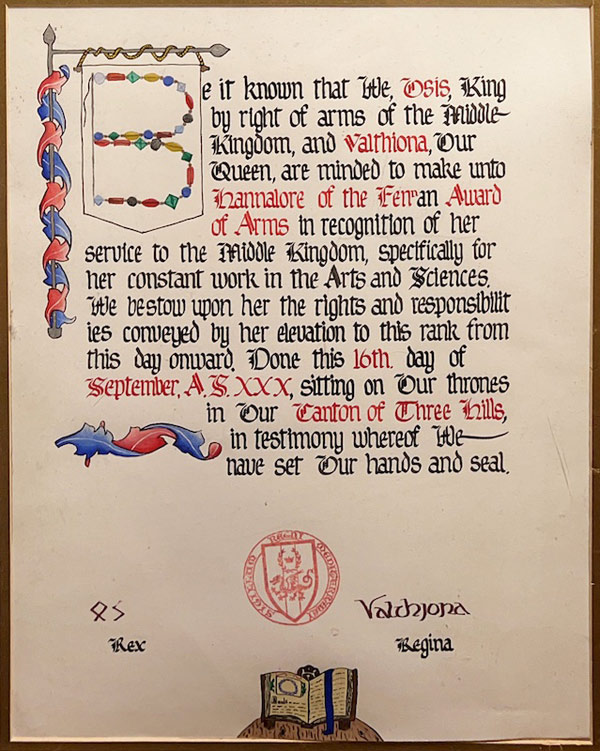 Be it known that We, Osis, King
by right of arms of the Middle
Kingdom, and Valthiona, Our
Queen, are minded to make unto
Hannalore of the Award
of Arms in recognition of her
service to the Middle Kingdom, specifically for
her constant work in the Arts and Sciences.
We bestow upon her the rights and responsibilit
ies conveyed by her elevation to this rank from
this day onward. Done this 16th. day of
September, A.S. XXX, sitting on Our thrones
in Our Canton of Three Hills,
in testimony whereof We
have set Our hands and seal.
SIGILLUM REGNI
OS
Valthjona
Rex
Regina